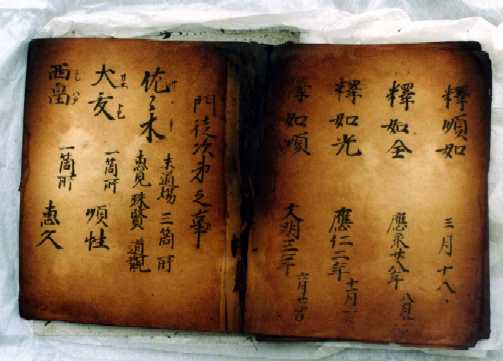 釋順如 三月十八
釋如全 應永廿八年八月
釋如光 應仁二年十一月一
釋如順 文明三三年六月
門徒次㐧之事
佐々木 末道場三箇所
惠見 珠賢 道觀
大友 一箇所 順性
西畠 一箇所 惠久